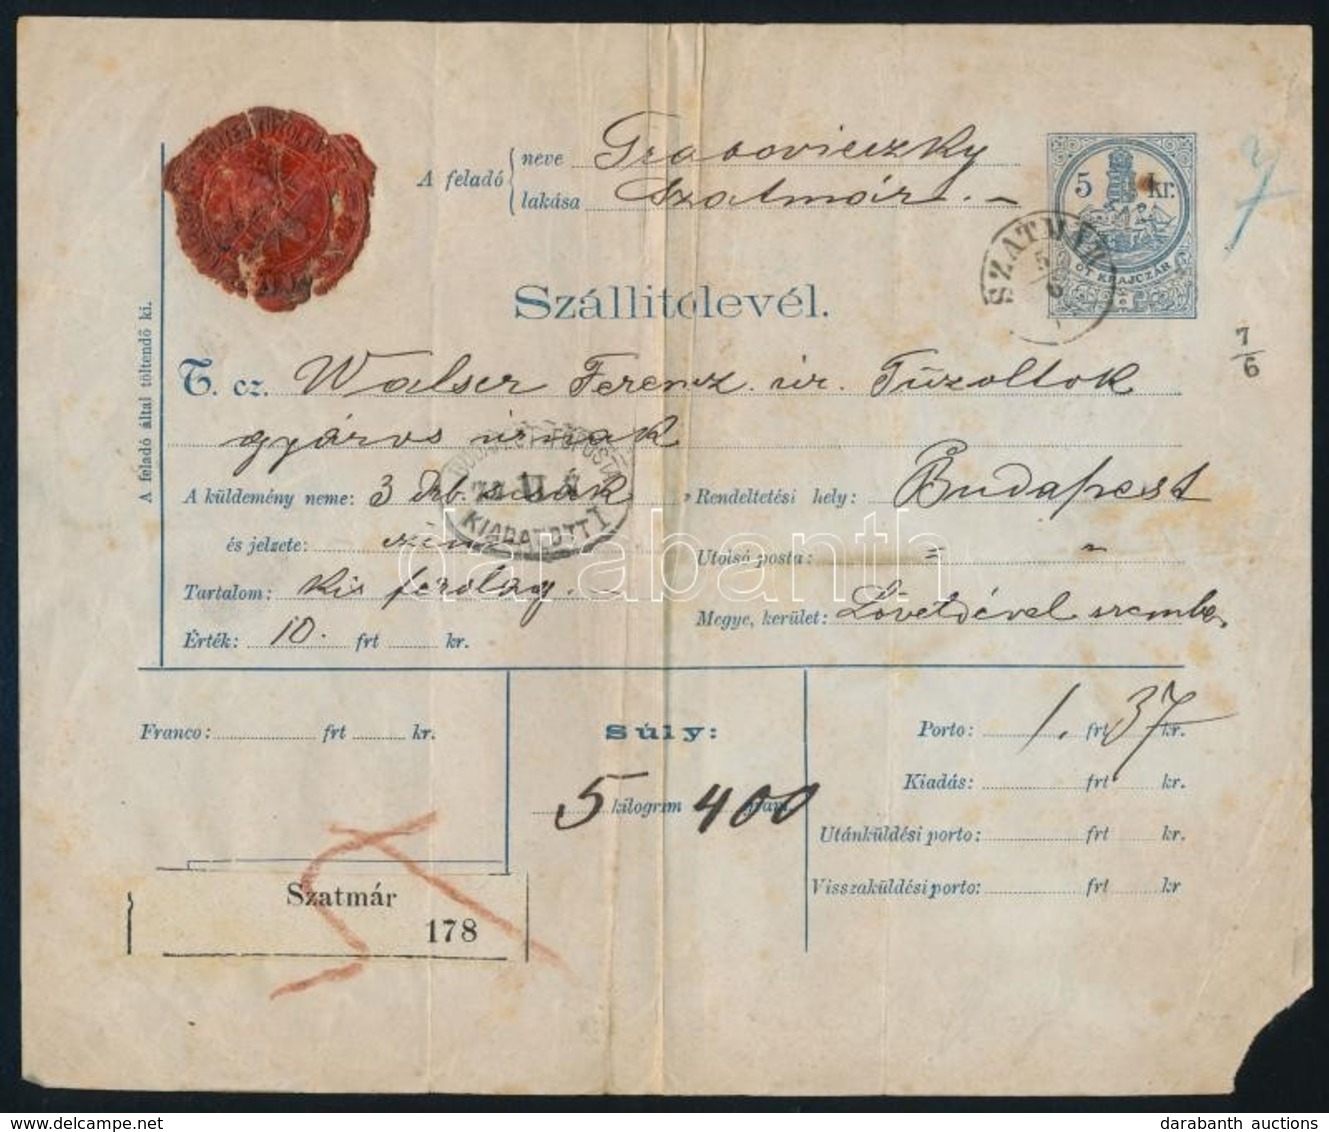 A feladó neve Grabovieczky
lakása Szatmár. -
5 kr.
ÖT KRAJCZÁR
SZATMÁR
7
7/6
Szállitólevél.
A feladó által töltendő ki.
T. cz. Walser Ferencz úr. Tűzoltok
gyáros úrnak
BUDAPEST FŐPOSTA
KIADATOTT I
A küldemény neme: 3 drb. sisák
Rendeltetési hely: Budapest
és jelzete:
Utolsó posta: " "
Tartalom:
Megye, kerület: Lövetdével szembe.
Érték: 10. frt kr.
Franco: frt kr.
Súly:
5 kilogrm 400
Porto: 1. frt 37 kr.
Kiadás: frt kr.
Utánküldési porto: frt kr
Visszaküldési porto: frt kr
Szatmár
178
darabanth
darabanth auctions